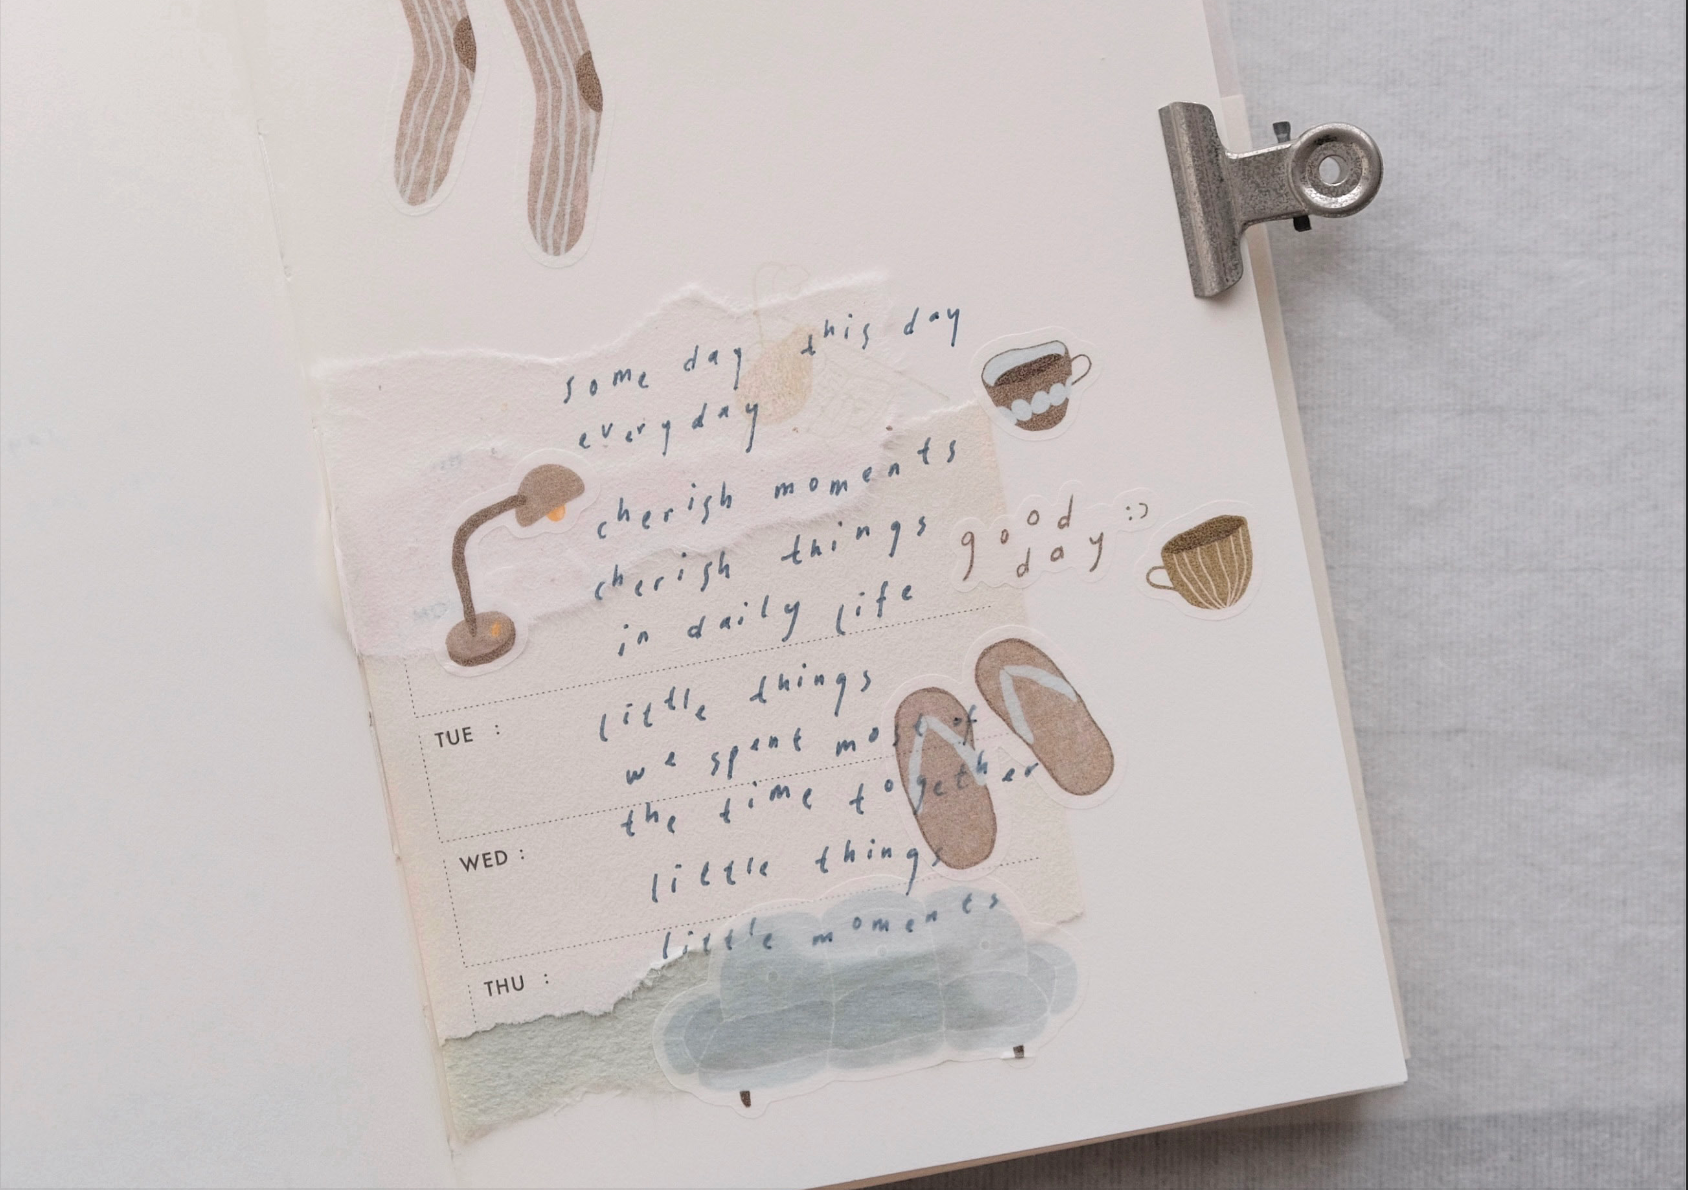 some day this day
everyday
cherish moments
cherish things
in daily life
good
day :)
little things
TUE :
we spent most of
the time together
WED :
little things
little moments
THU :